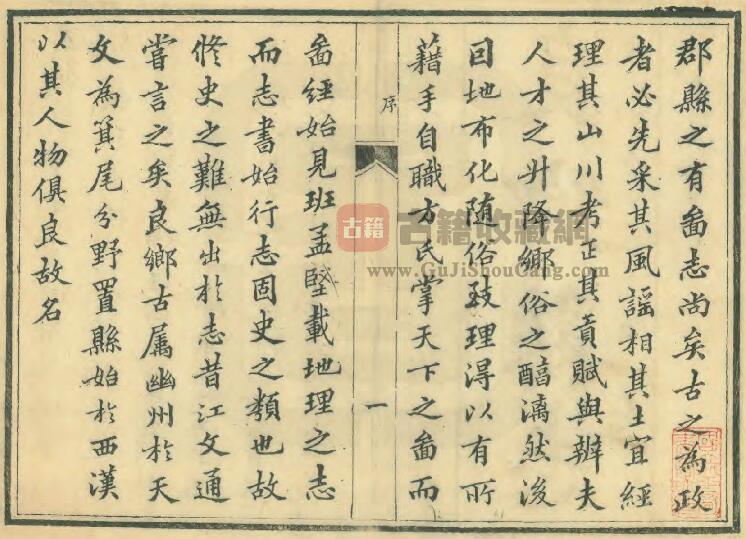 郡縣之有啚志尚矣古之為政
者必先采其風謡相其土宜經
理其山川考正其貢賦與辧夫
人才之升降鄉俗之醕漓然後
因地布化随俗致理得以有所
藉手自職方氏掌天下之啚而
序
一
啚經始見班孟堅載地理之志
而志書始行志固史之類也故
修史之難無出於志昔江文通
嘗言之矣良鄉古属幽州於天
文為箕尾分野置縣始於西漢
以其人物俱良故名
古籍
古籍收藏網
www.GuJiShouCang.com